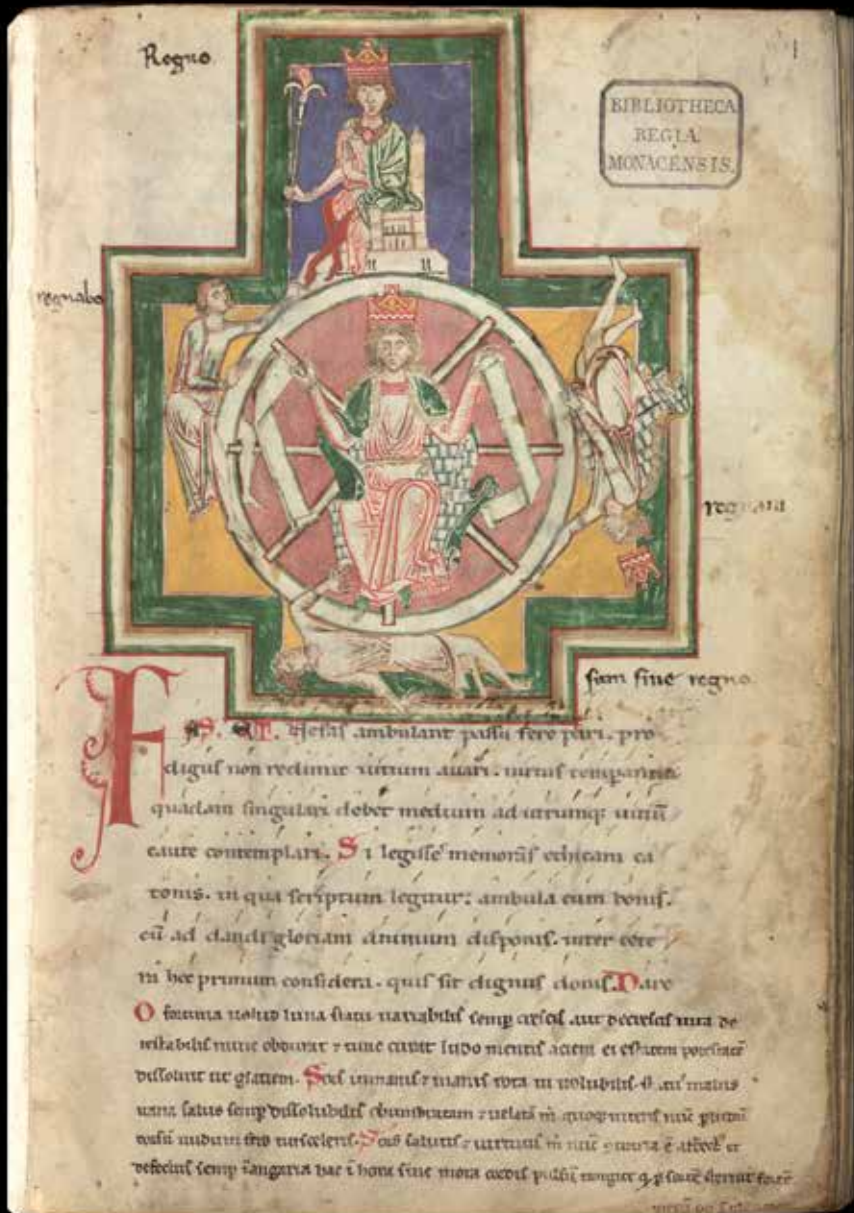 Regno
BIBLIOTHECA
REGIA
MONACENSIS.
regnabo
regnaui
sum sine regno
FAS. ET. Nefas ambulant passu fere pari. pro
digus non redimit uitium auari. uirtus temperantia
quadam singulari debet medium ad utrumq; uitiū
caute contemplari. Si legisse memoras ethicam ca
tonis. in qua scriptum legitur: ambula cum bonis.
cū ad dandi gloriam animum disponis. inter cete
ra hec primum considera. quis sit dignus donis. Dare
O fortuna uelud luna statu uariabilis semp crescis aut decrescis uita de
testabilis nunc obdurat ⁊ tunc curat ludo mentis aciem egestatem potestatē
dissoluit ut glatiem. Sors inmanis ⁊ inanis rota tu uolubilis status malus
uana salus semp dissolubilis obumbratam ⁊ uelatā m̄ quoq; niteris nūc p ludū
dorsū nudum fero tui sceleris. Sors salutis ⁊ uirtutis m̄ nūc ⁊traria ē affect et
defectus semp ī angaria hac ī hora sine mora cordis pulsū tangite q̄ p sortē sternit fortē